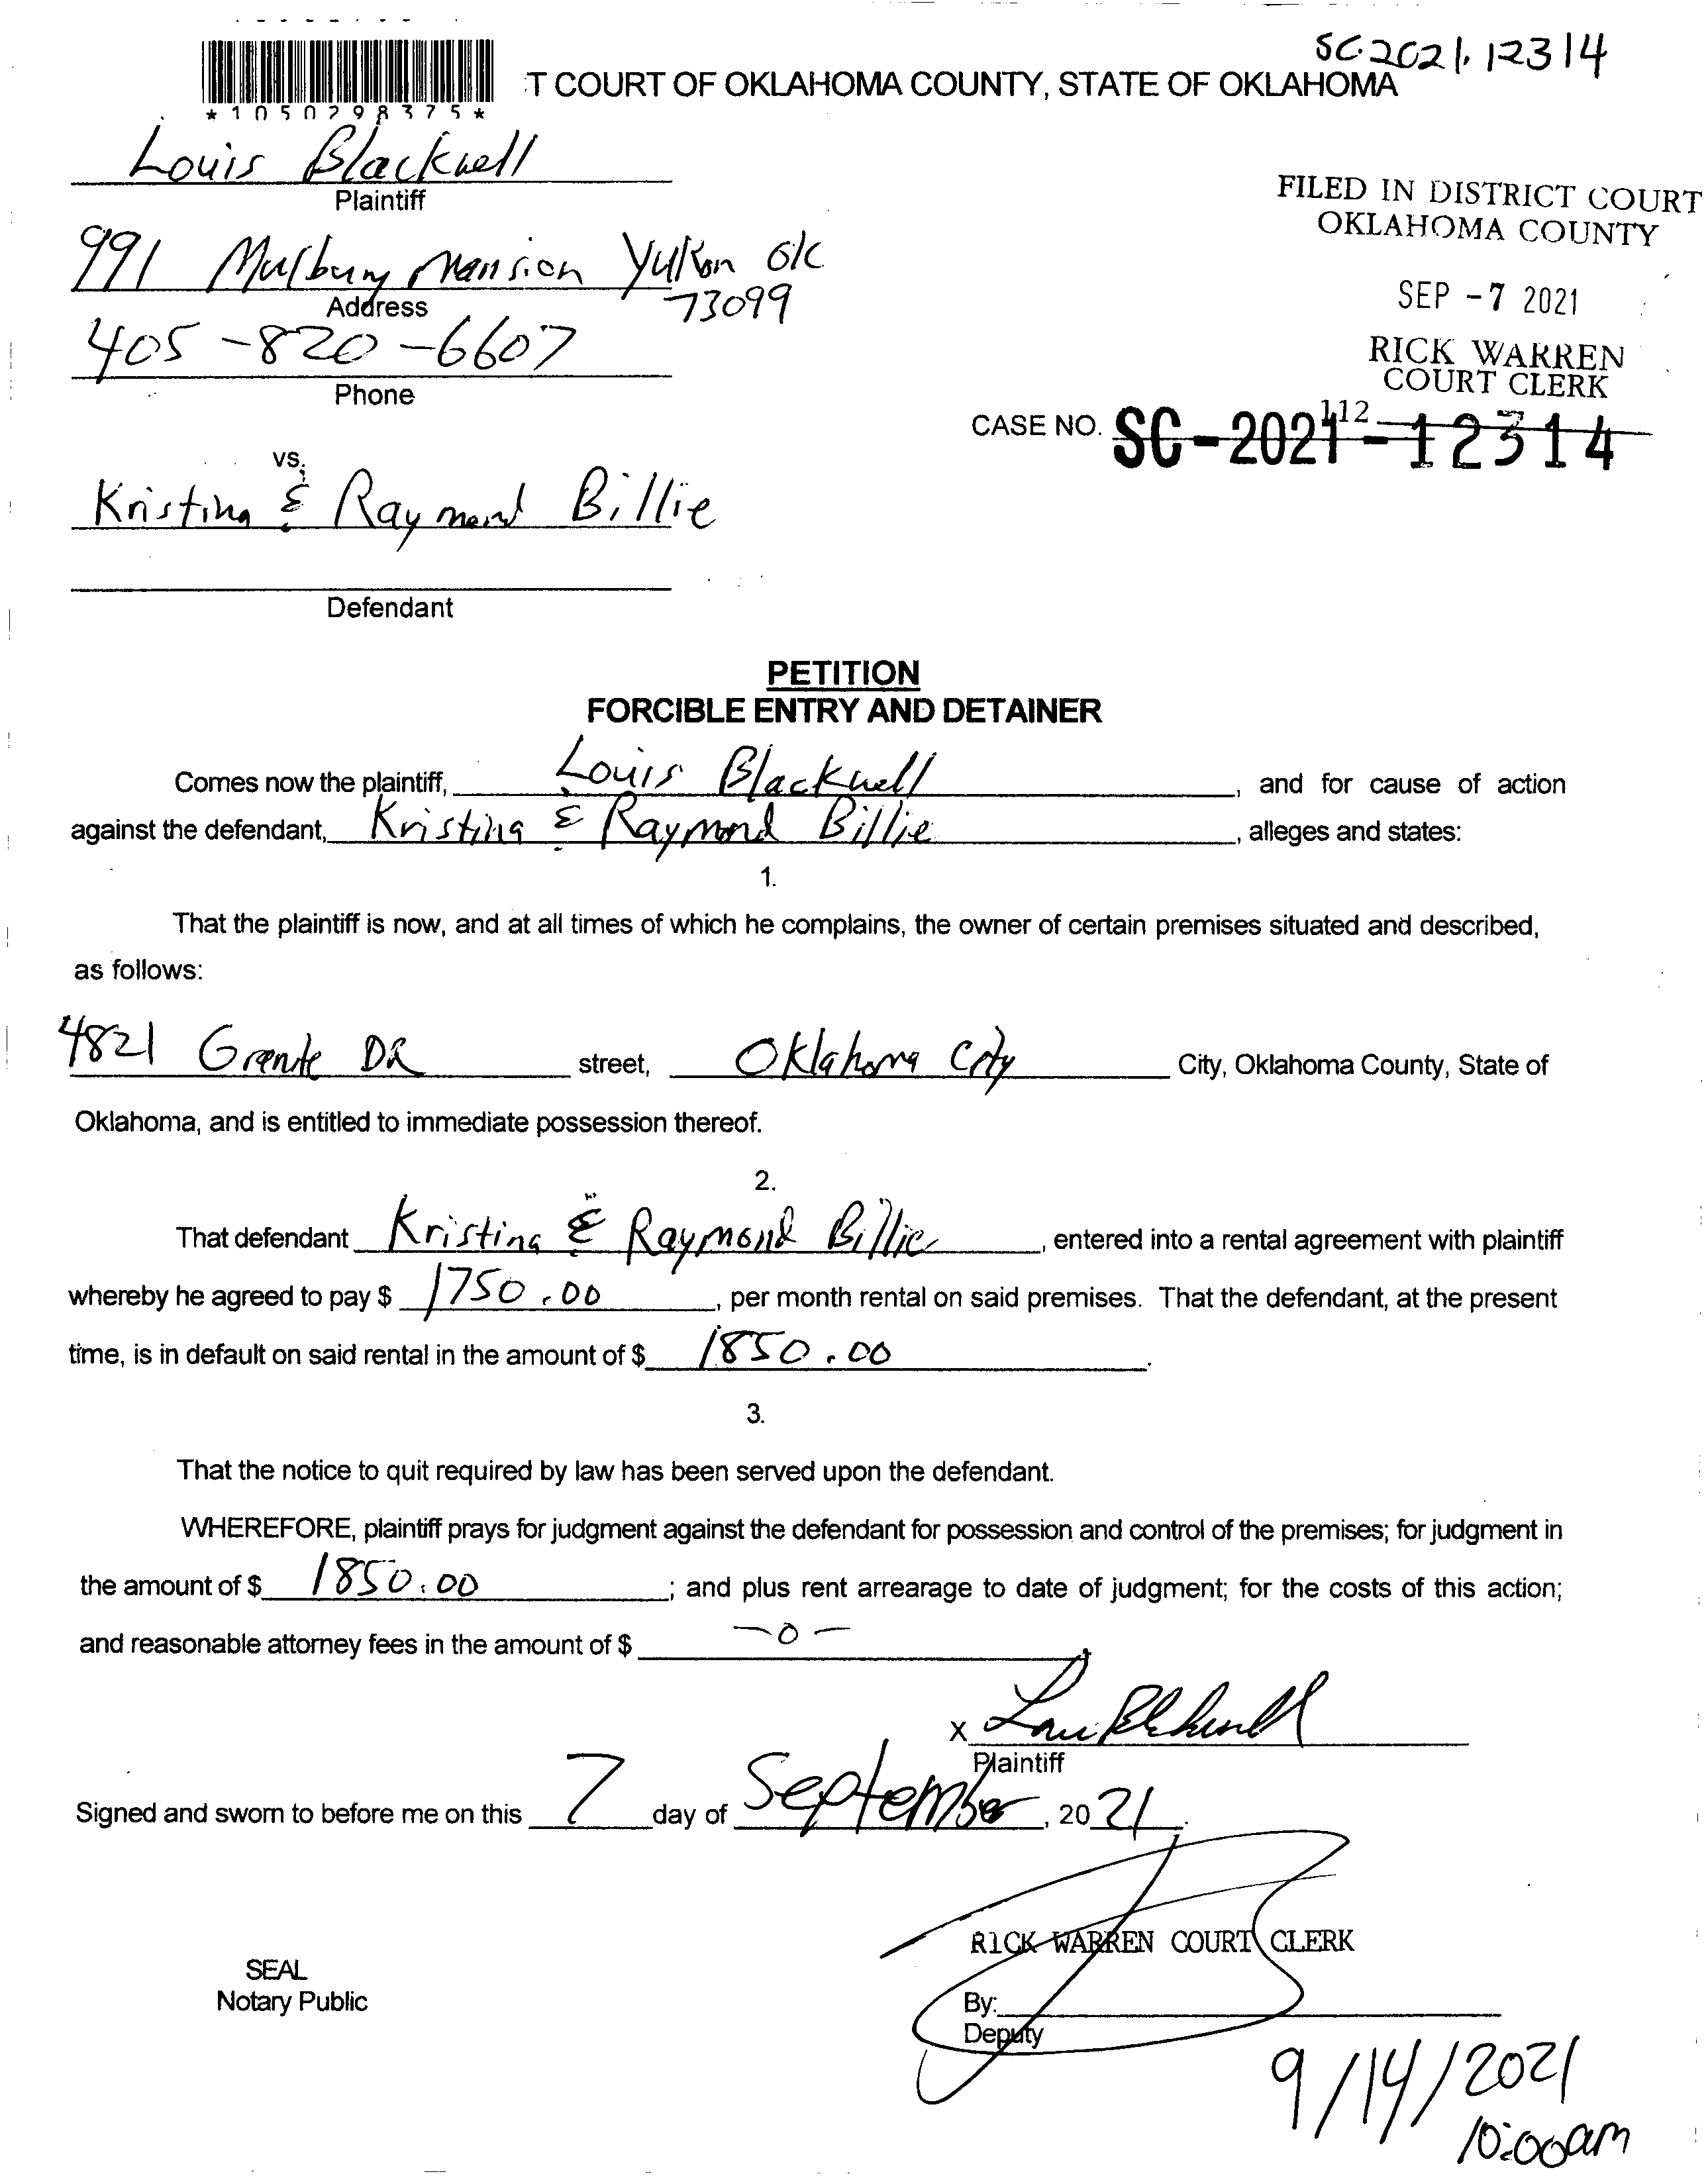 SC.2021.12314
T COURT OF OKLAHOMA COUNTY, STATE OF OKLAHOMA
*1050298375*
Louis Blackwell
Plaintiff
FILED IN DISTRICT COURT
OKLAHOMA COUNTY
991 Mansion Yukon OK
Address
73099
SEP -7 2021
405-820-6607
Phone
RICK WARREN
COURT CLERK
112
CASE NO. SC-2021-12314
vs.
Kristina & Raymond Billie
Defendant
PETITION
FORCIBLE ENTRY AND DETAINER
Comes now the plaintiff, Louis Blackwell, and for cause of action
against the defendant, Kristina & Raymond Billie, alleges and states:
1.
That the plaintiff is now, and at all times of which he complains, the owner of certain premises situated and described,
as follows:
4821 Granite DR street, Oklahoma City City, Oklahoma County, State of
Oklahoma, and is entitled to immediate possession thereof.
2.
That defendant Kristina & Raymond Billie, entered into a rental agreement with plaintiff
whereby he agreed to pay $ 1750.00, per month rental on said premises. That the defendant, at the present
time, is in default on said rental in the amount of $ 1850.00.
3.
That the notice to quit required by law has been served upon the defendant.
WHEREFORE, plaintiff prays for judgment against the defendant for possession and control of the premises; for judgment in
the amount of $ 1850.00; and plus rent arrearage to date of judgment; for the costs of this action;
and reasonable attorney fees in the amount of $ -0-
X
Plaintiff
Signed and sworn to before me on this 7 day of September, 2021.
RICK WARREN COURT CLERK
SEAL
Notary Public
By:
Deputy
9/14/2021
10:00am